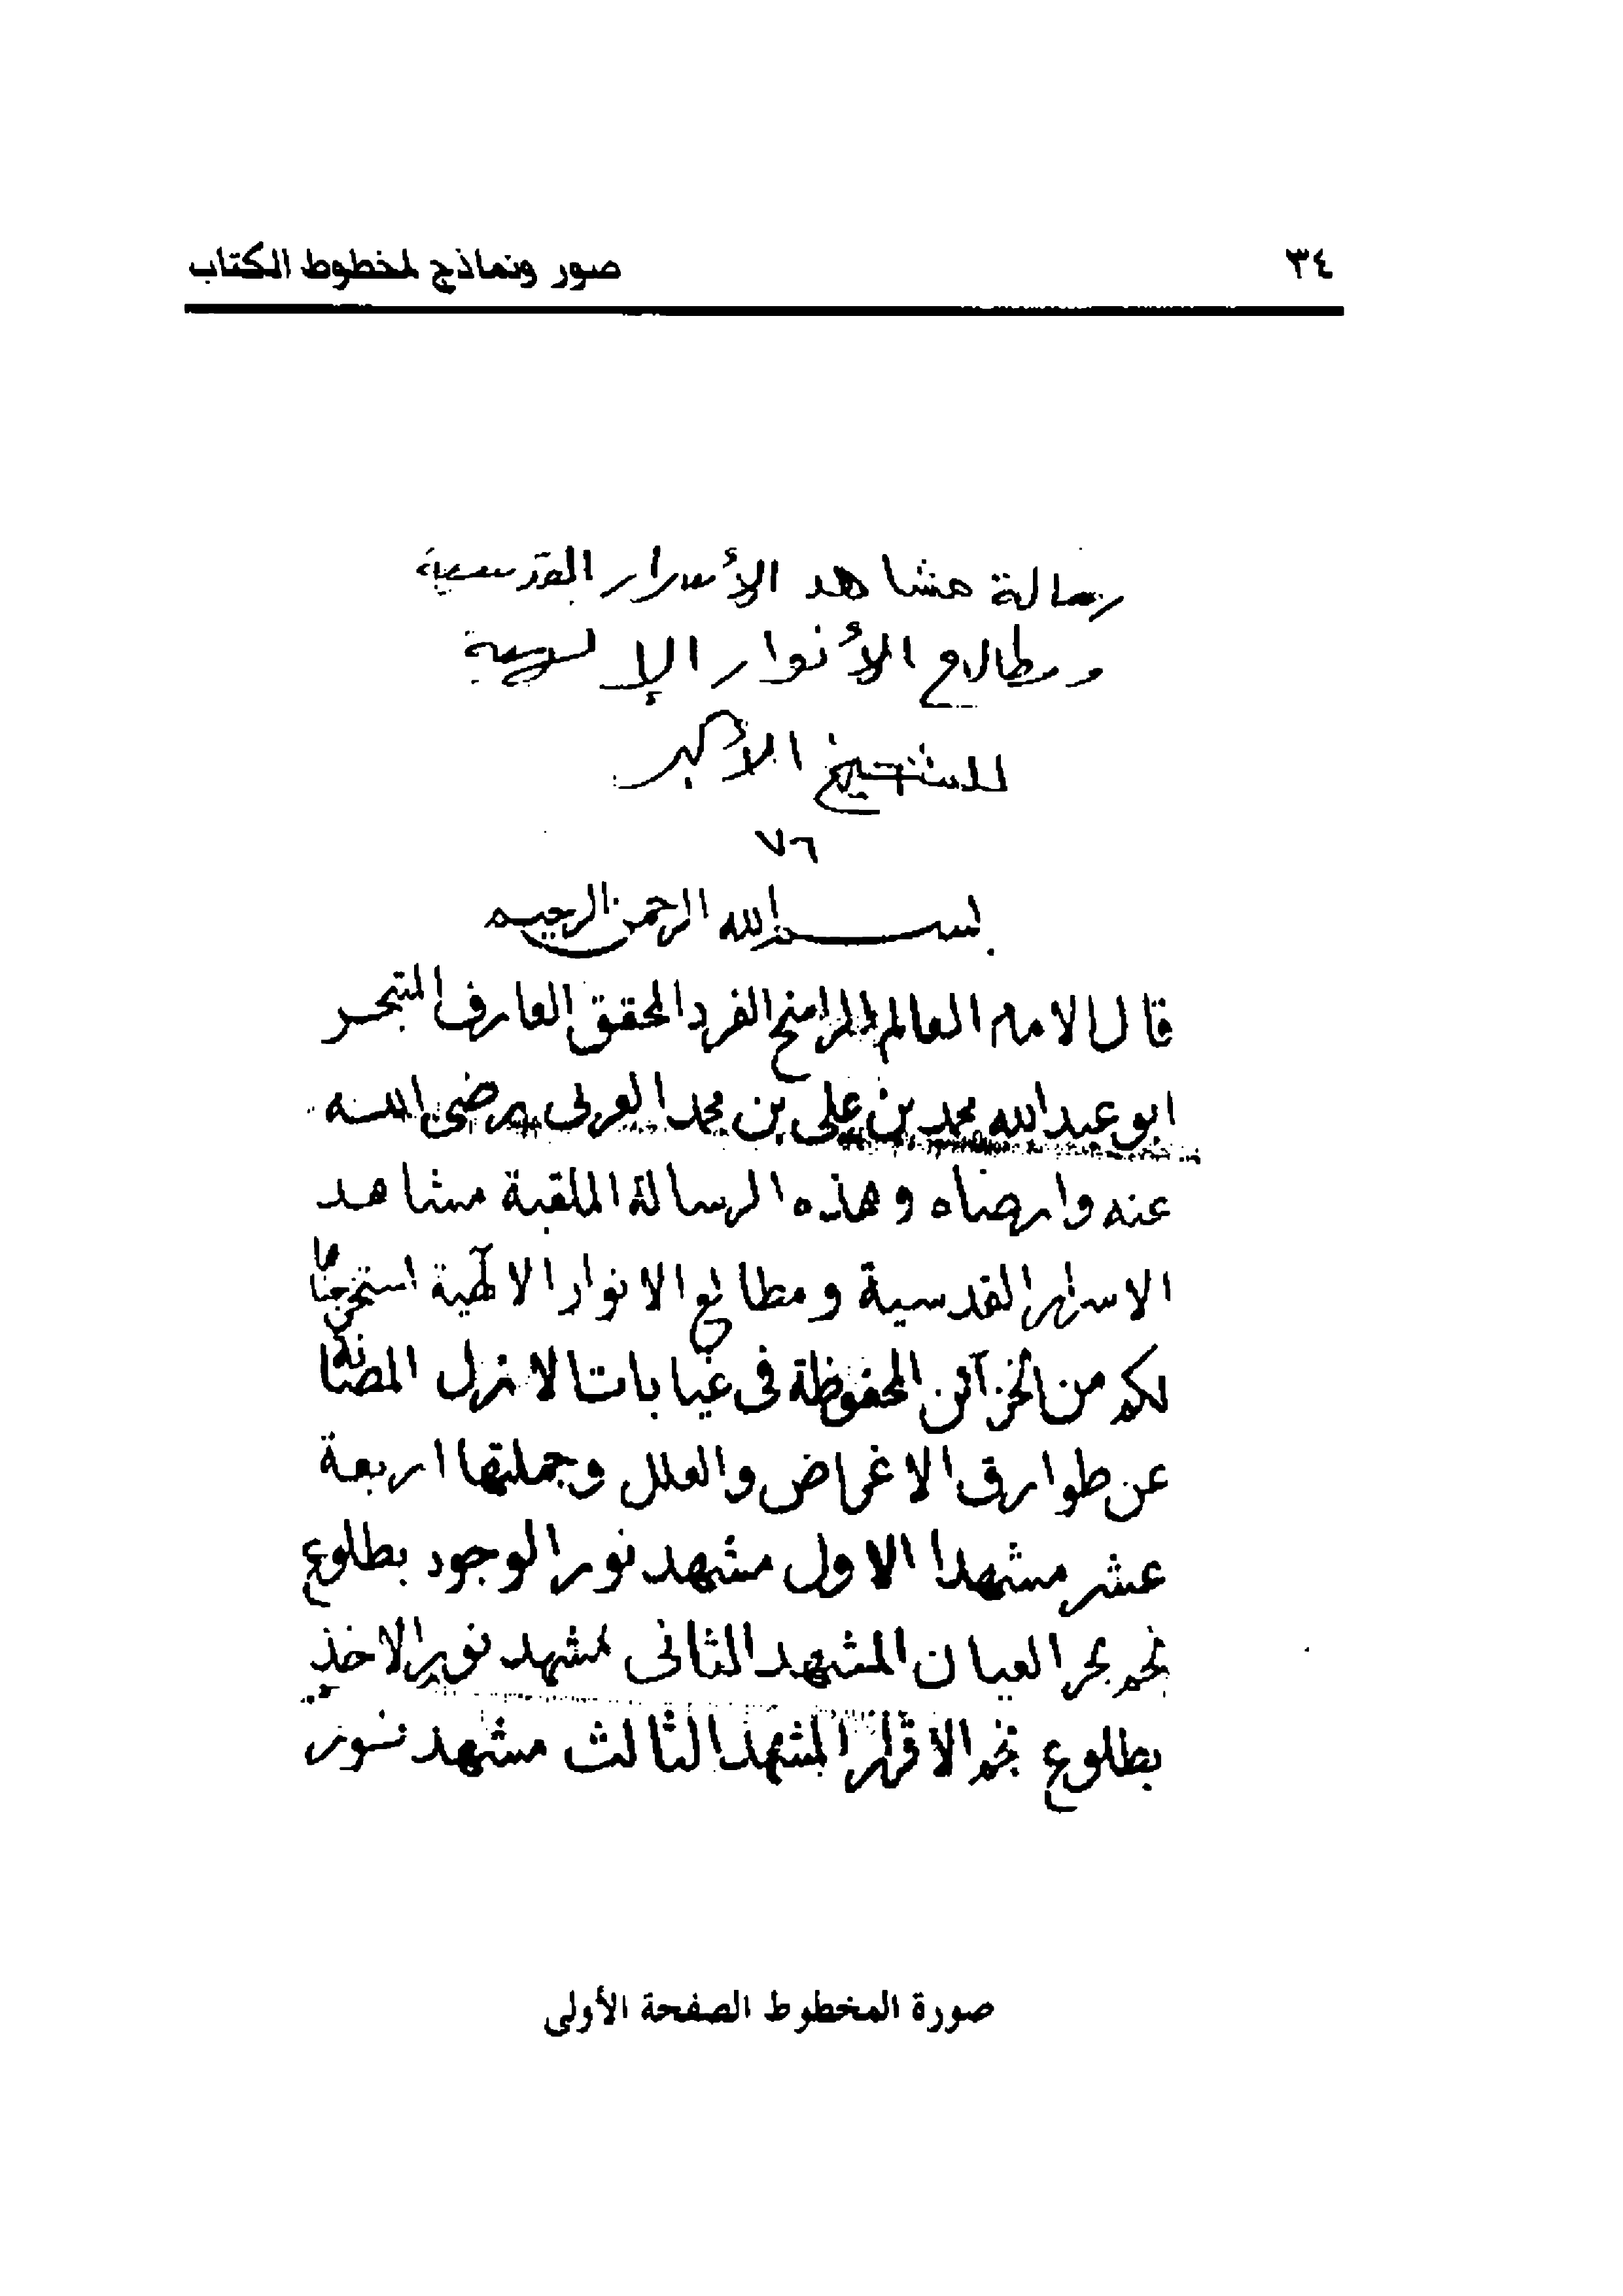 ٣٤ صور ونماذج لمخطوط الكتاب
رسالة مشاهد الأسرار القدسية
ومطالع الأنوار الإلهية
للشيخ الأكبر
٧٦
بسم الله الرحمن الرحيم
قال الامام العالم الراسخ الفرد المحقق العارف المتبحر
ابو عبد الله محمد بن علي بن محمد العربى رضى الله
عنه وارضاه وهذه الرسالة الملقبة مشاهد
الاسرار القدسية ومطالع الانوار الالهية استخرجنا
لكم من الخزآئن المحفوظة فى غيابات الازل المصانة
عن طوارق الاغراض والعلل وجملتها اربعة
عشر مشهدا الاول مشهد نور الوجود بطلوع
نجم بحر العيان المشهد الثانى مشهد نور الاخذ
بطلوع نجم الاقرار المشهد الثالث مشهد نور
صورة المخطوط الصفحة الأولى